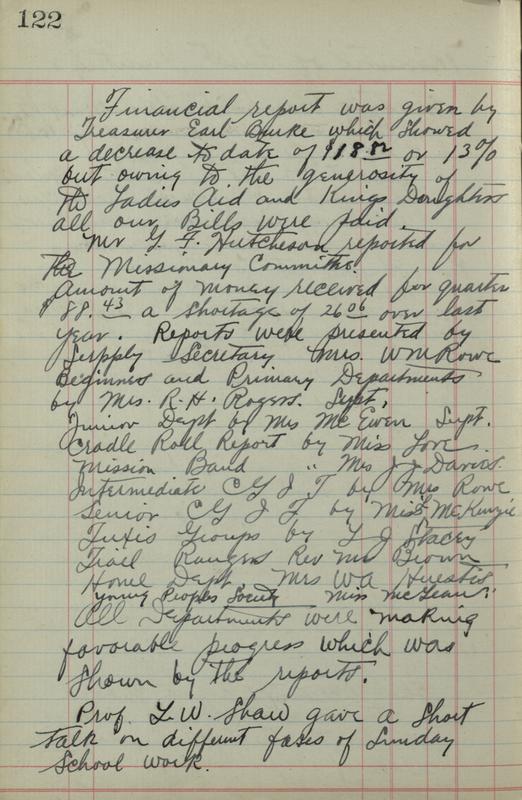 122
Financial report was given by
Treasurer Earl Burke which showed
a decrease to date of $118.82 or 13%
but owing to the generosity of
the Ladies Aid and Kings Daughters
all our Bills were paid.
Mr G. F. Hutcheson reported for
the Missionary Committe.
Amount of money received for quarter
$88.43 a shortage of 26 06 over last
year. Reports were presented by
Supply Secretary Mrs. W M Rowe
Beginners and Primary Departments
by Mrs. R. H. Rogers. Supt.
Junior Dept by Mrs McEwen Supt.
Cradle Roll Report by Miss Love.
Mission Band " Mrs J. J. Davies.
Intermediate C G I T by Mrs Rowe
Senior C G I T by Miss McKinzie
Tuxis Groups by L J Stacey
Trail Rangers Rev Mr Brown
Home Dept Mrs W A Huestis
Young Peoples Society Miss McLean.
All Departments were making
favorable progress which was
shown by the reports.
Prof. L. W. Shaw gave a short
talk on different fases of Sunday
School work.